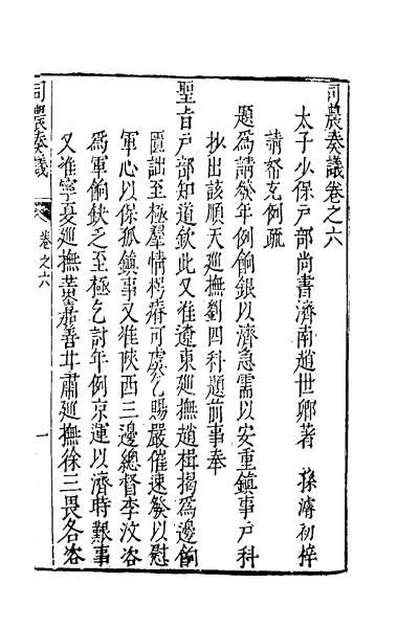 司農奏議卷之六
太子少保戶部尚書濟南趙世卿著　孫濬初梓
請帑充例疏
題為請發年例餉銀以濟急需以安重鎮事戶科
抄出該順天巡撫劉四科題前事奉
聖旨戶部知道欽此又准遼東巡撫趙楫揭為邊餉
匱詘至極羣情楞瘠可虞乞賜嚴催速發以慰
軍心以保孤鎮事又准陝西三邊總督李汶咨
為軍餉缺乏至極乞討年例京運以濟時艱事
又准寧夏巡撫黃嘉善甘肅巡撫徐三畏各咨
司農奏議
卷之六
一